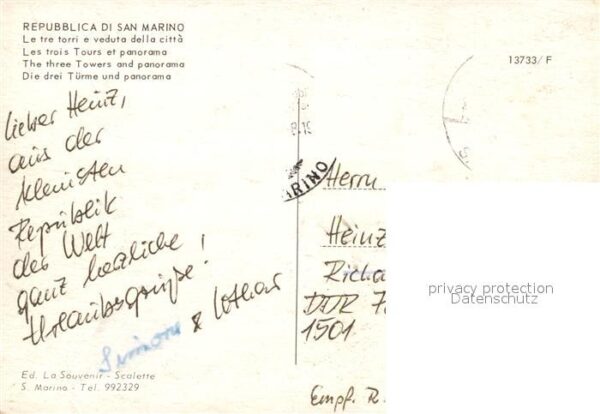 REPUBBLICA DI SAN MARINO
Le tre torri e veduta della città
Les trois Tours et panorama
The three Towers and panorama
Die drei Türme und panorama
13733/F
Lieber Heinz,
aus der
kleinsten
Republik
der Welt
ganz herzliche
Urlaubsgrüße!
Simone & Lothar
ARINO
Herrn
Heinz
Richa
DDR
1501
Empf. R.
privacy protection
Datenschutz
Ed. La Souvenir - Scalette
S. Marino - Tel. 992329